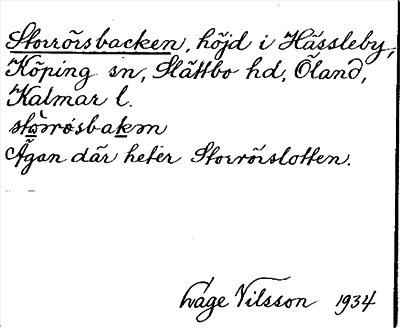 Storrörsbacken, höjd i Hässleby,
Köping sn, Slättbo hd, Öland,
Kalmar l.
stòrrɵsbakm
Ägan där heter Storrörslotten.
Lage Nilsson 1934